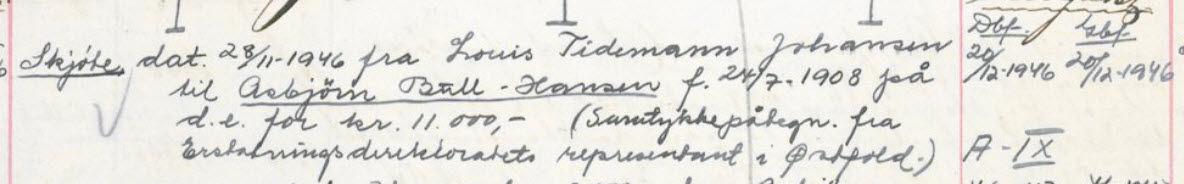 Dbf. Gbf.
Skjöte, dat. 28/11-1946 fra Louis Tidemann Johansen 20/12-1946 20/12-1946
til Asbjörn Bull-Hansen f. 24/7-1908 på
d.e. for kr. 11.000,- (Samtykkepåtegn. fra
Erstatningsdirektoratets representant i Østfold.) A-IX